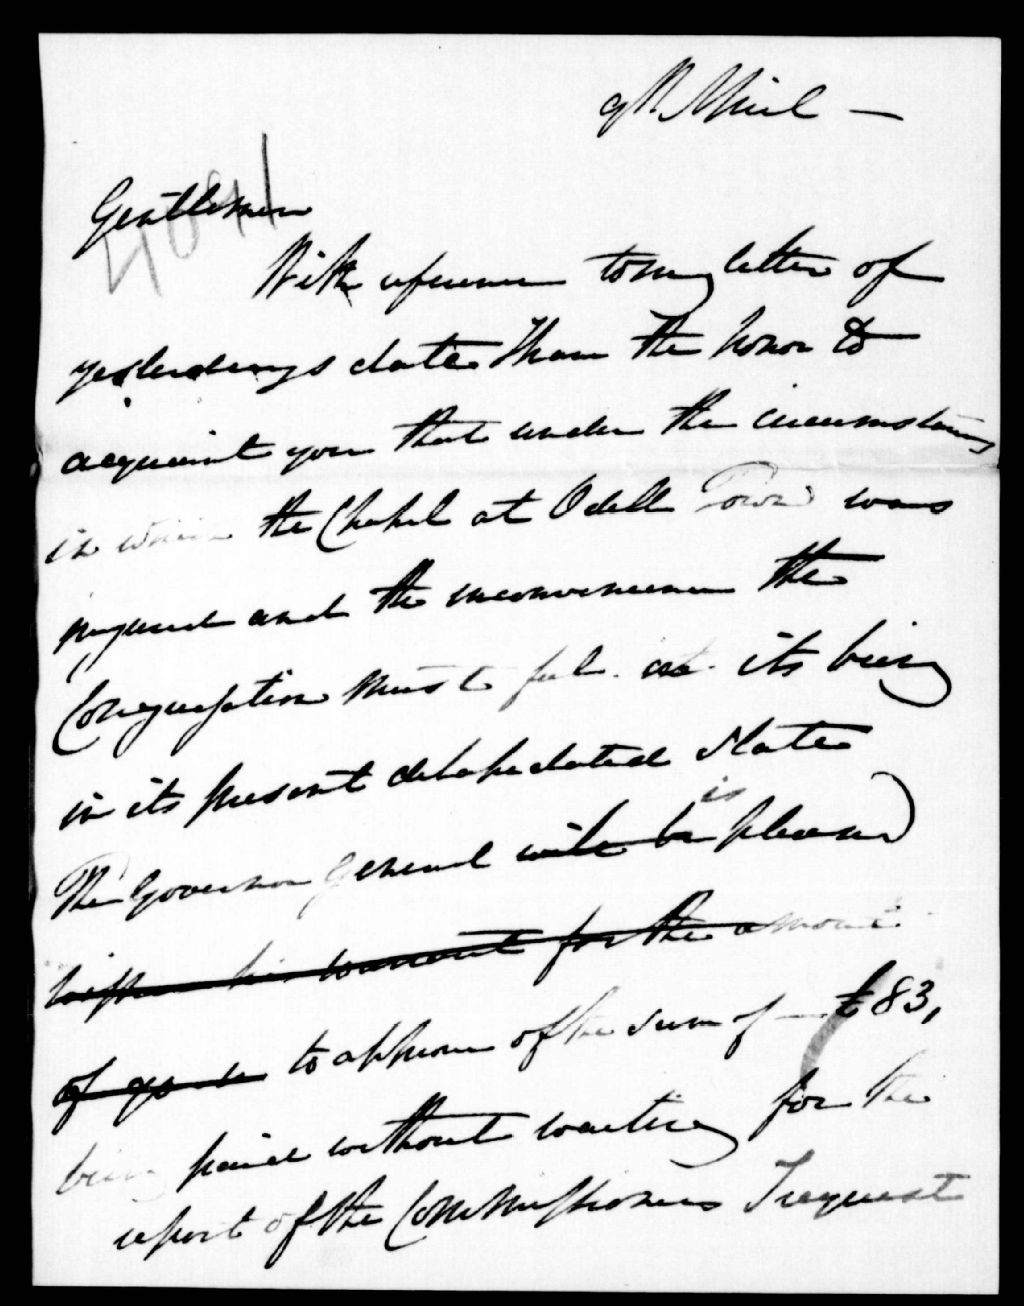 9th April —
Gentlemen
With reference to my letter of
yesterdays date I have the honor to
acquaint you that under the circumstances
in which the Chapel at Odell Town was
injured and the inconvenience the
Congregation must feel at its being
in its present delapedated state
The Governor General will be is pleased
his warrant for the amount
of to approve of the sum of — £83,
being paid without waiting for the
report of the Commissioners I request